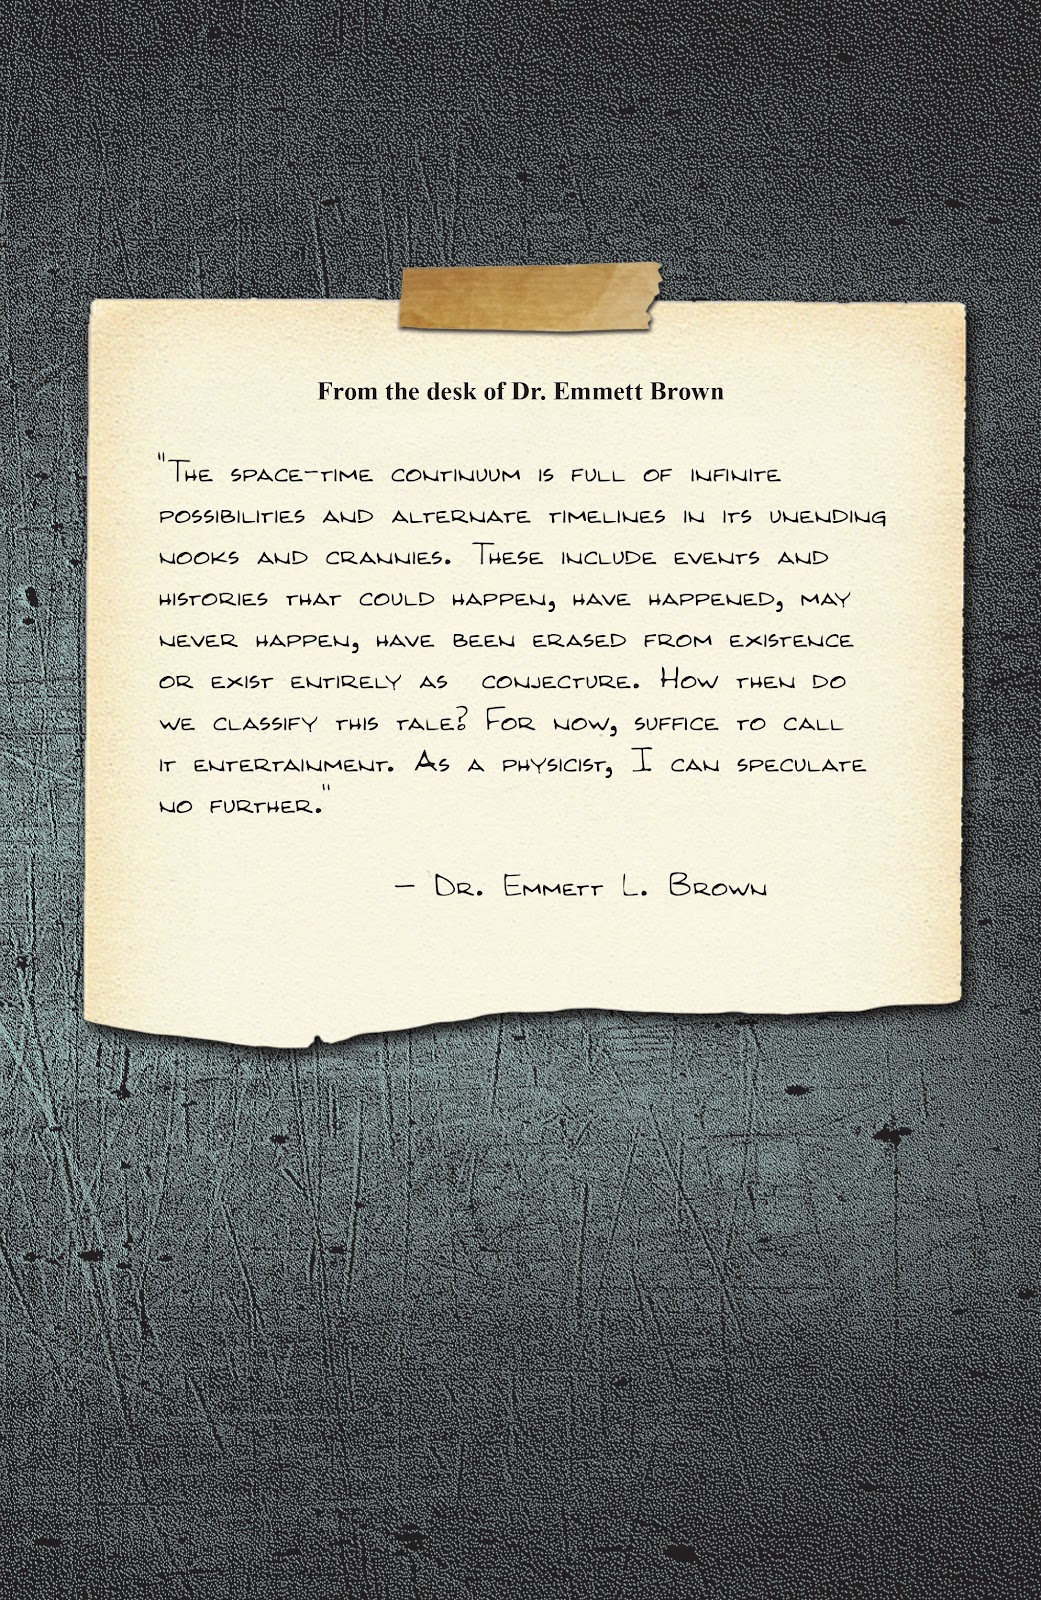 From the desk of Dr. Emmett Brown
"The space-time continuum is full of infinite
possibilities and alternate timelines in its unending
nooks and crannies. These include events and
histories that could happen, have happened, may
never happen, have been erased from existence
or exist entirely as conjecture. How then do
we classify this tale? For now, suffice to call
it entertainment. As a physicist, I can speculate
no further."
– Dr. Emmett L. Brown